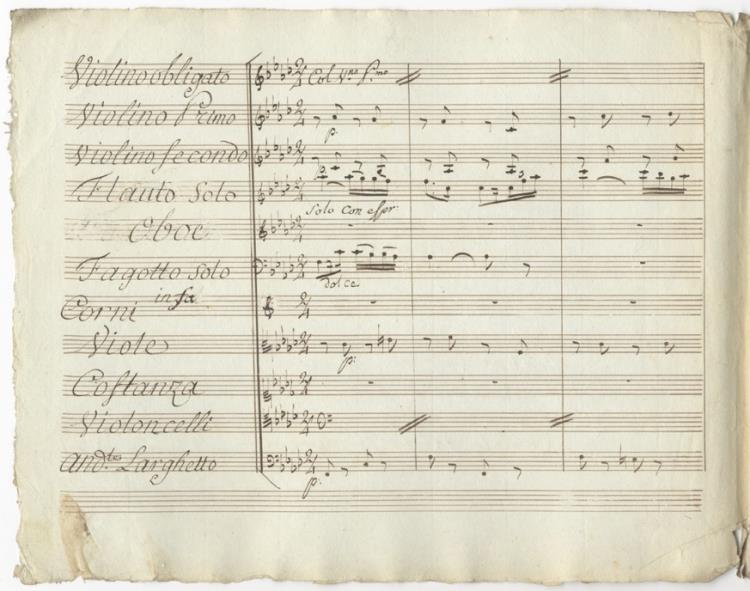 Violino obligato Col Vno Pmo
Violino Primo
p.
Violino Secondo
Flauto Solo
Solo Con espr:
Oboe
Fagotto Solo
dolce
in fa
Corni
Viole
p:
Costanza
Violoncelli
And.te Larghetto
p: